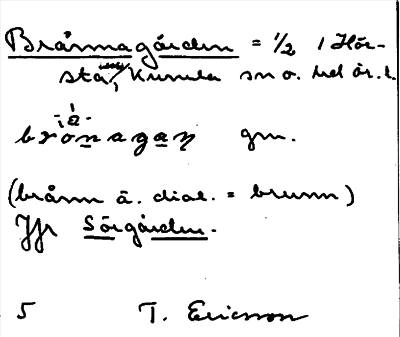 Brånnagården = 1/2 i Hör-
sta, Kumla sn o. hd Ör. l.
-, a -
bronagaŋ gm.
(brånn ä. dial. = brunn)
Jfr Sörgården.
5 T. Ericsson